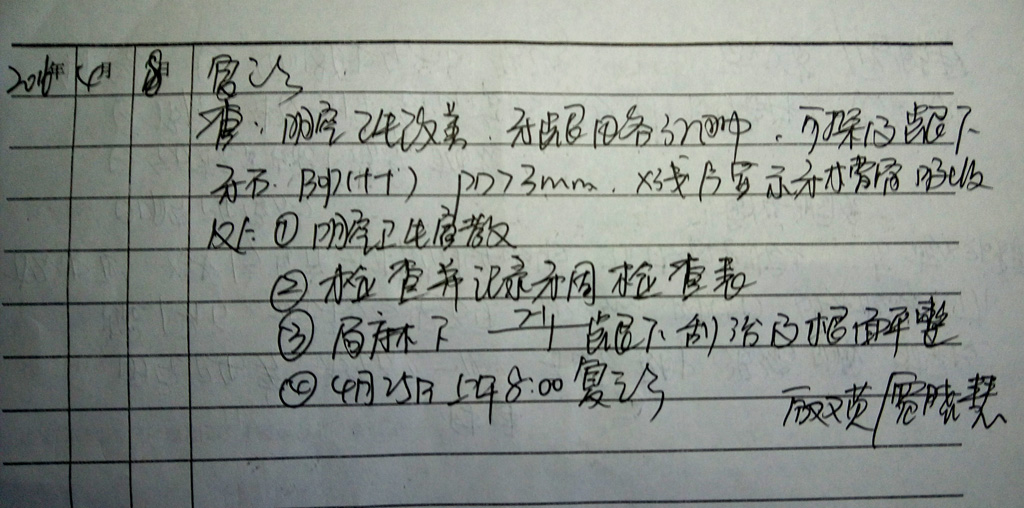 2016年 4月 8日 复诊
查:口腔卫生改善.牙龈中,可探及龈下
牙石.BOP(++) PD>3mm.X线片显示牙槽骨吸收
处:①口腔卫生宣教
②检查并记录牙周检查表
③局麻下 龈下刮治及根面平整
④4月25日上午8:00复诊